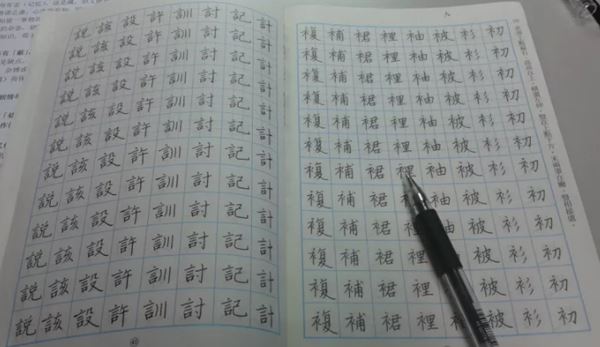 初初初初初初初初初初初初
衫衫衫衫衫衫衫衫衫衫衫衫
被被被被被被被被被被
袖袖袖袖袖袖袖袖
裡裡裡裡裡裡裡裡裡裡裡裡
裙裙裙裙裙裙裙裙裙裙裙裙
補補補補補補補補補補補補
複複複複複複複複複複複複
計計計計計計計計計計計計
記記記記記記記記記記記記
討討討討討討討討討討討討
訓訓訓訓訓訓訓訓訓訓訓訓
許許許許許許許許許許許許
設設設設設設設設設設設設
該該該該該該該該該該該該
說說說說說說說說說說說說